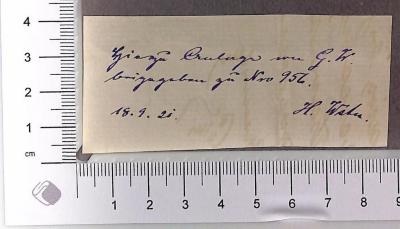 Hiezu Analage von G. W.
beigegeben zu Nro 956.
18. 9. 21.
H.
4
3
2
1
cm
1 2 3 4 5 6 7 8 9